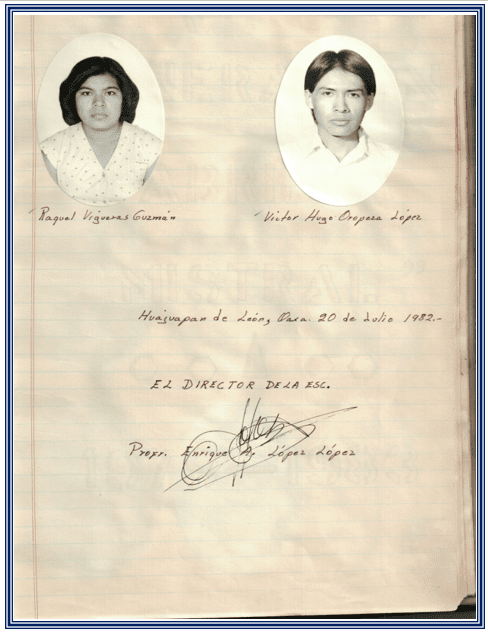 Raquel Vigueras Guzmán
Victor Hugo Oropeza López
Huajuapan de León, Oaxa. 20 de Julio 1982.-
EL DIRECTOR DE LA ESC.
Profr. Enrique A. López López